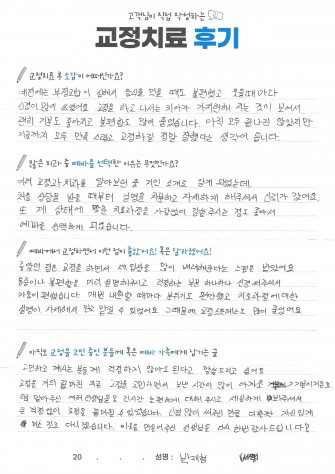 고객님이 직접 작성하는
교정치료 후기
교정치료 후 소감이 어떠한가요?
예전에는 부정교합이 심해서 음식을 먹을 때도 불편했고 웃을때마다
신경이 많이 쓰였어요 교정을 하고 나서는 치아가 가지런해 지는 것이 보여서
괜히 기분도 좋아지고 불편함도 많이 줄었습니다. 아직 모두 끝나진 않았지만
지금까지 모두 만족스럽고 교정하길 정말 잘했다는 생각이 듭니다.
많은 치과 중 예바를 선택한 이유는 무엇인가요?
여러 교정과 치과를 알아보던 중 지인 소개로 알게 되었는데
처음 상담을 받을 때부터 설명을 꼼꼼하고 자세하게 해주셔서 신뢰가 갔어요.
또 제 상태에 맞는 치료과정을 말씀해 주시는 점도 좋아서
예바를 선택하게 되었습니다.
예바에서 교정하면서 이런 점이 좋았어요! 혹은 달라졌어요!
좋았던 점은 교정을 하면서 세심함을 많이 배려해준다는 느낌을 받았어요
통증이나 불편함을 미리 설명해주시고 걱정하는 부분 하나하나 신경 써주셔서
마음이 편했습니다. 매번 내원할 때마다 분위기도 편안했고 치료과정에 대한
설명이 자세해서 믿고 맡길 수 있었어요 그때문에, 교정 스트레스도 많이 줄었어요
아직도 교정을 고민 중인 분들께 혹은 예바 가족에게 남기는 글
고민하고 계시는 분들께 걱정하지 않아도 된다고 말씀드리고 싶어요
교정을 거의 끝마친 지금 교정을 고민하면서 보낸 시간이 많이 아까운
저를 맡아주신 여러 선생님들도 긴시간 노력해 대해 주시고 세심하게 해주셔서
큰 걱정없이 교정을 끝마칠 수 있었습니다. 신경 많이 써주신 만큼 예쁘한 자신있게
다니겠습니다. 이를 만들어주신 선생님들 다시 한번 감사드립니다!
20 . . . 성명 :